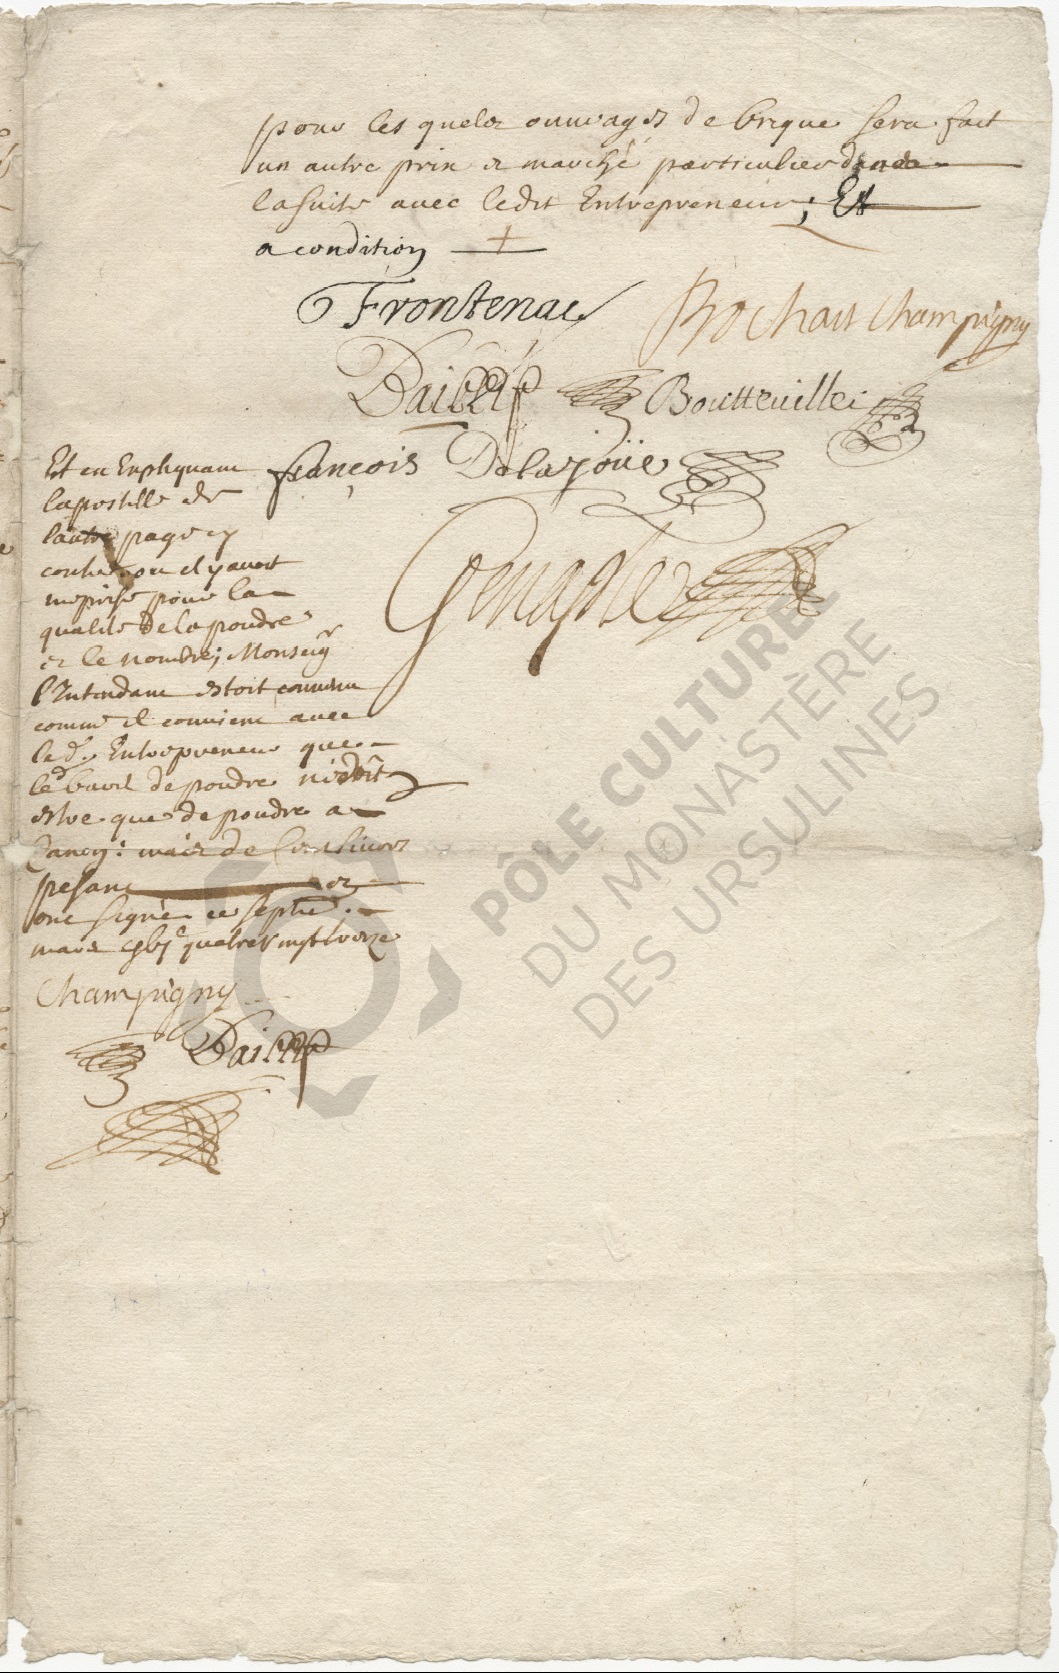 pour les quelz ouurages de brique sera fait
un autre prix et marché particulier dans
la suite auec ledit Entrepreneur; Et
a condition +
Frontenac
Bochart Champigny
Bouttevillei
francois Delajoüe
Genaple
Et en Expliquant
lapostille de
lautre page cy
contre ou il y auoit
meprise pour la
qualité de la poudre
et le nombre; Monseigr
l'Intendant estoit conuenu
comme il conuient auec
led. Entrepreneur que
led baril de poudre
estre que de poudre a
Canon: mais de Cent liures
pesant et
ont signé ce septie.
mars gbjc quatre vingt treize
Champigny
PÔLE CULTUREL
DU MONASTÈRE
DES URSULINES